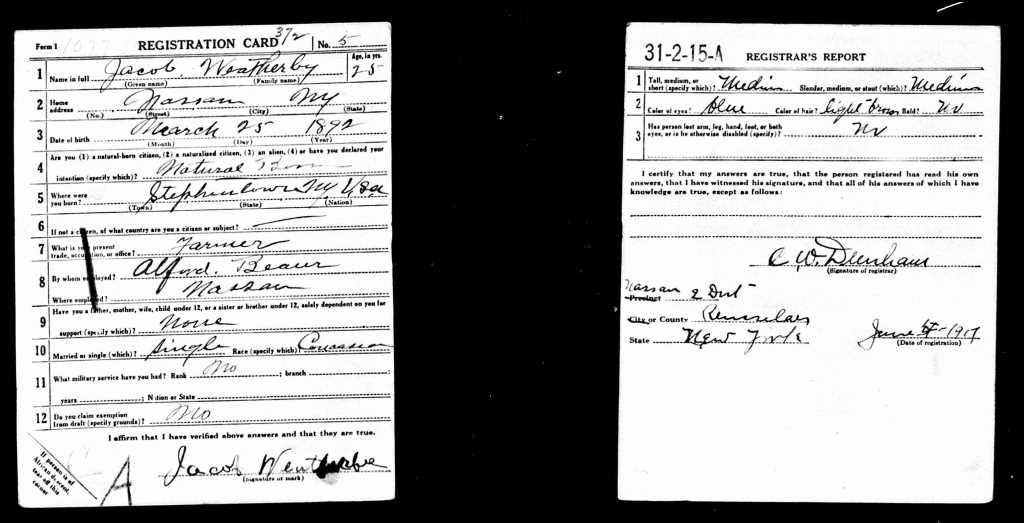 Form 1 REGISTRATION CARD 372 No. 5
1 Name in full Jacob Weatherby Age, in yrs. 25
(Given name) (Family name)
2 Home address Nassau NY
(No.) (Street) (City) (State)
3 Date of birth March 25 1892
(Month) (Day) (Year)
4 Are you (1) a natural-born citizen, (2) a naturalized citizen, (3) an alien, (4) or have you declared your
intention (specify which)? Natural Born
5 Where were you born? Stephentown NY USa
(Town) (State) (Nation)
6 If not a citizen, of what country are you a citizen or subject?
7 What is your present trade, occupation, or office? Farmer
8 By whom employed? Alford.
Where employed? Nassau
9 Have you a father, mother, wife, child under 12, or a sister or brother under 12, solely dependent on you for
support (specify which)? None
10 Married or single (which)? Single Race (specify which)? Caucasian
11 What military service have you had? Rank No ; branch ;
years ; Nation or State
12 Do you claim exemption from draft (specify grounds)? No
I affirm that I have verified above answers and that they are true.
Jacob
(Signature or mark)
If person is of African descent, tear off this corner
A
31-2-15-A REGISTRAR'S REPORT
1 Tall, medium, or short (specify which)? Medium Slender, medium, or stout (which)? Medium
2 Color of eyes? blue Color of hair? light brown Bald? No
3 Has person lost arm, leg, hand, foot, or both eyes, or is he otherwise disabled (specify)? No
I certify that my answers are true, that the person registered has read his own
answers, that I have witnessed his signature, and that all of his answers of which I have
knowledge are true, except as follows:
C. W. Dunham
(Signature of registrar)
Nassau 2 Dist
Precinct
City or County Rensselaer
State New York June 1917
(Date of registration)